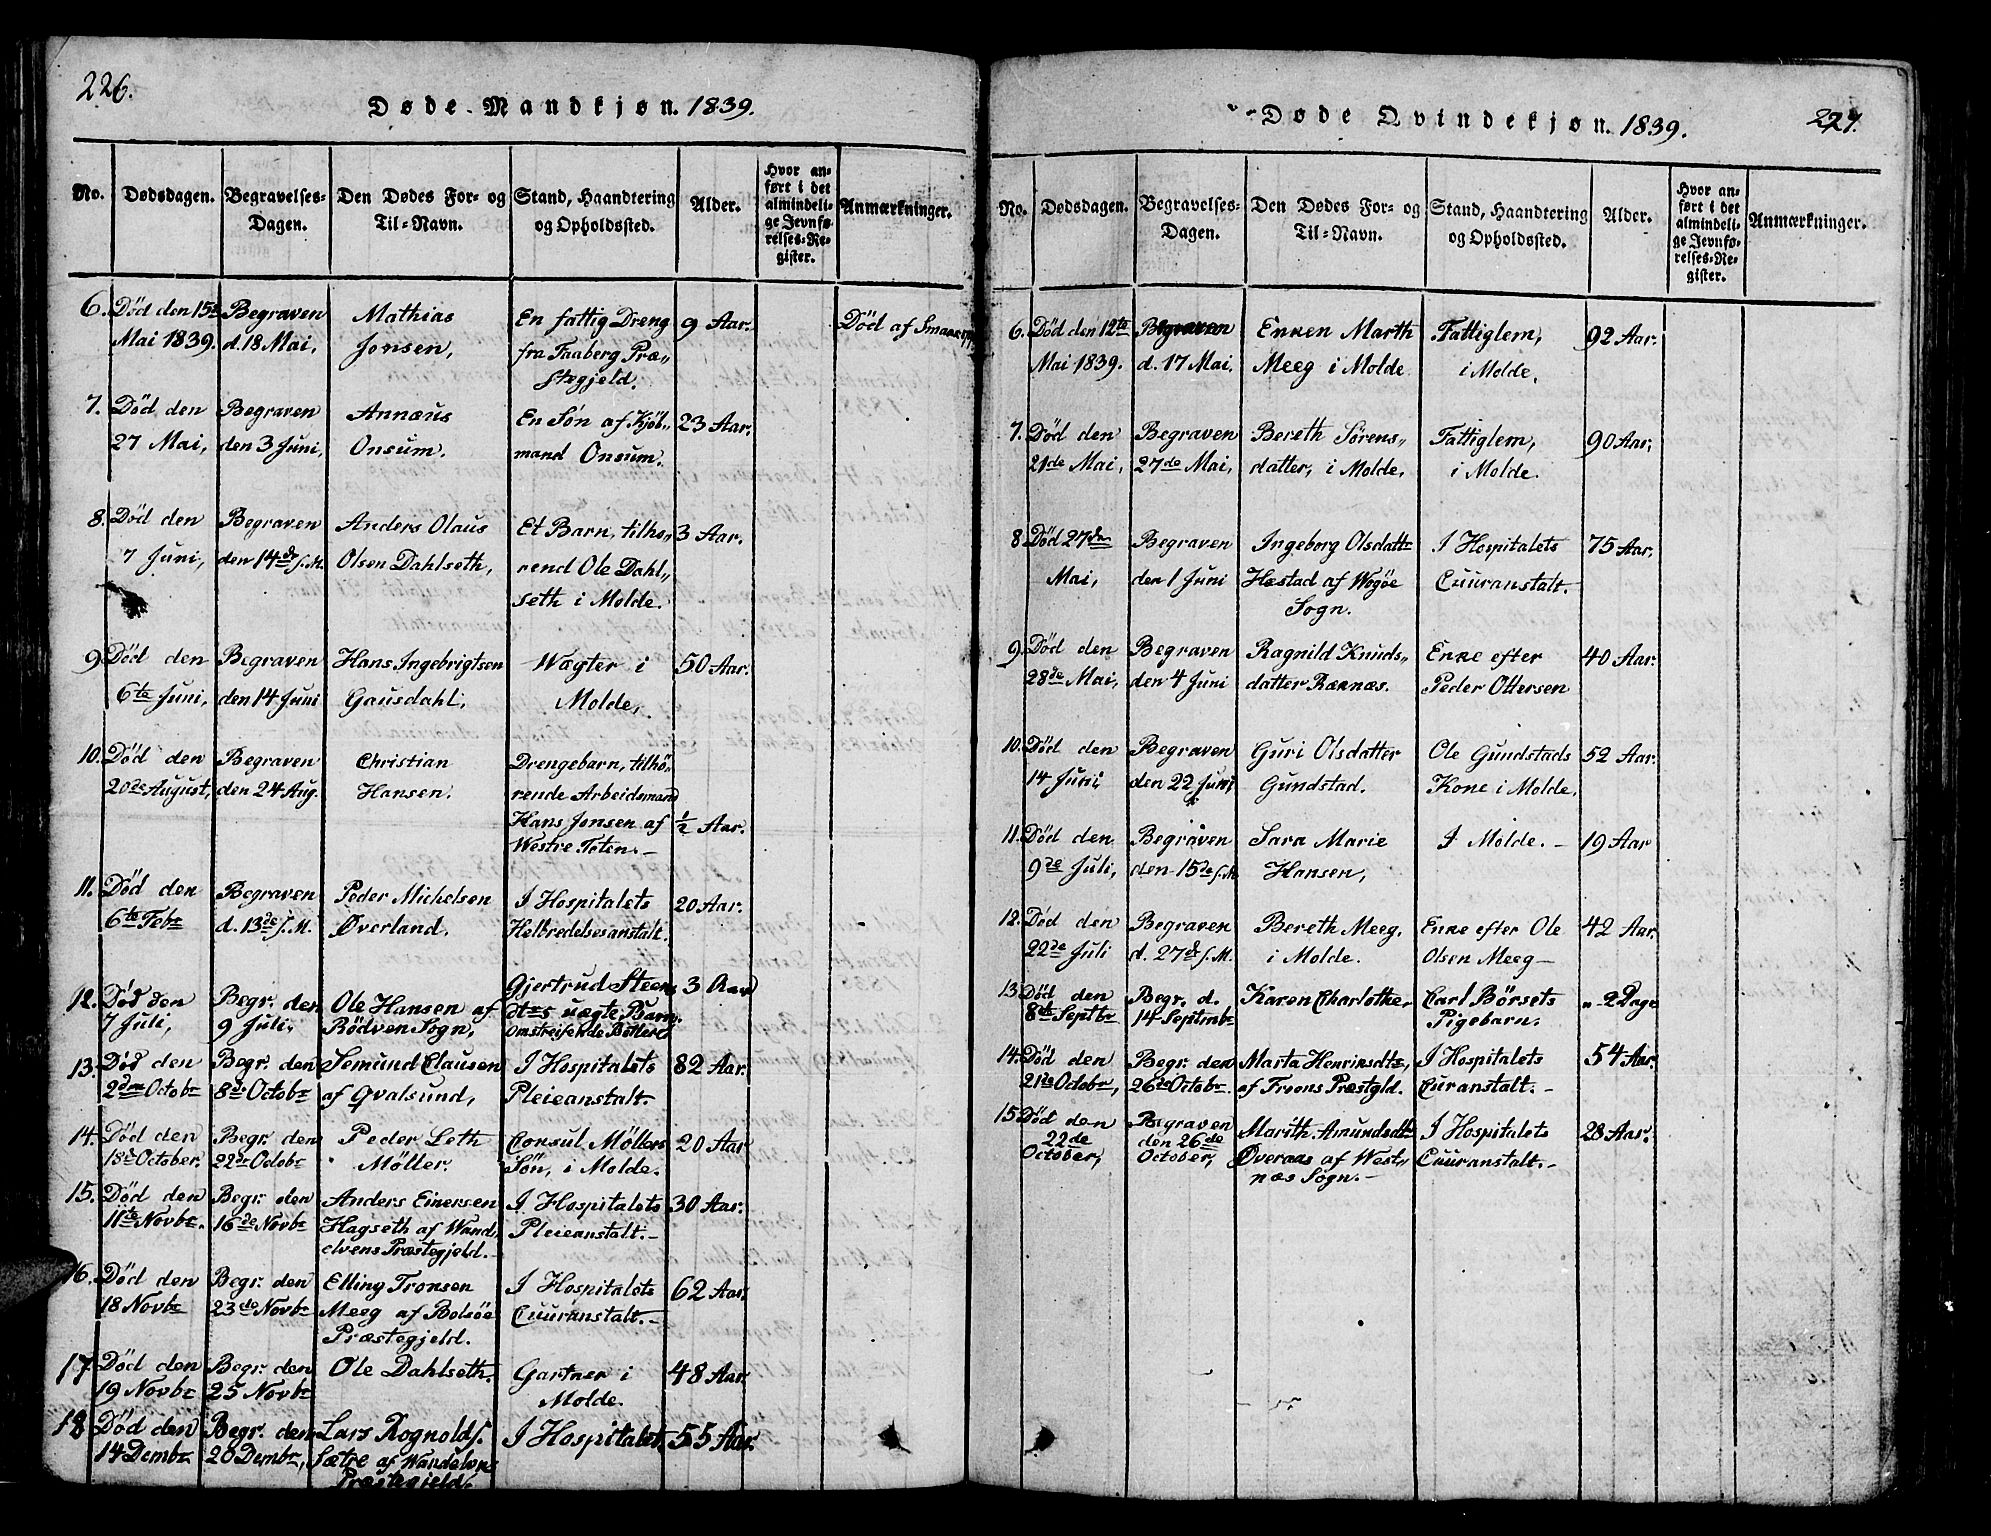 226.
Døde Mandkjøn. 1839.
No.
Dødsdagen.
Begravelses-
Dagen.
Den Dødes For- og
Til-Navn.
Stand, Haandtering
og Opholdssted.
Alder.
Hvor an-
ført i det
almindeli-
ge Jevnfø-
relses-Re-
gister.
Anmærkninger.
6. Død den 15de Begraven Mathias En fattig Dreng 9 Aar. Død af
Mai 1839. d. 18 Mai, Jonsen, fra Faaberg Præ„
stegjeld.
7. Død den Begraven Annæus En Søn af Kjøb„ 23 Aar.
27 Mai, den 3 Juni, Onsum. mand Onsum.
8. Død den Begraven Anders Olaus Et Barn, tilhø„ 3 Aar.
7 Juni, den 14de s.M. Olsen Dahlseth, rend Ole Dahl„
seth i Molde.
9. Død den Begraven Hans Ingebrigtsen Wægter i 50 Aar.
6te Juni, den 14 Juni Gausdahl, Molde,
10. Død den Begraven Christian Drengebarn, tilhø„
20de August, den 24 Aug. Hansen. rende Arbeidsmand
Hans Jonsen af 1/2 Aar.
Westre Toten.-
11. Død den Begraven Peder Michelsen I Hospitalets 20 Aar.
6te Febr d. 13de s.M. Øverland. Helbredelsesanstalt.
Gjertrud Steens 3 Aar
12. Død den Begr. den Ole Hansen af dtrs uægte Barn.
7 Juli, 9 Juli, Rödven Sogn, omstreifende Betlere
13. Død den Begr. den Semund Clausen I Hospitalets 82 Aar.
2den Octobr 8de Octobr af Qvalsund, Pleieanstalt.
14. Død den Begr. den Peder Leth Consul Möllers 20 Aar
18de October. 22de Octobr Möller. Søn, i Molde.
15. Død den Begr. den Anders Einersen I Hospitalets 30 Aar.
11te Novbr. 16de Novbr Hagseth af Wand„ Pleieanstalt.-
elvens Præstegjeld.-
16. Død den Begr. den Elling Tronsen I Hospitalets 62 Aar.
18 Novbr 23de Novbr Meeg af Bolsøe Cuuranstalt.-
Præstegjeld.
17. Død den Begr. den Ole Dahlseth. Gartner i 48 Aar.
19 Novbr 25 Novbr Molde.
18 Død den Begr. den Lars Rognolds. I Hospitalet. 55 Aar.
14 Dembr 20 Dembr, Sætre af Wandelvns
Præstegjeld,
Døde Qvindekjøn. 1839.
227.
No.
Dødsdagen.
Begravelses-
Dagen.
Den Dødes For- og
Til-Navn.
Stand, Haandtering
og Opholdssted.
Alder.
Hvor an-
ført i det
almindeli-
ge Jevnfø-
relses-Re-
gister.
Anmærkninger.
6. Død den 12te Begraven Enken Marth Fattiglem, 92 Aar.
Mai 1839. d. 17 Mai. Meeg i Molde i Molde.
7. Død den Begraven Bereth Sørens„ Fattiglem, 90 Aar,
21de Mai, 27de Mai, datter, i Molde. i Molde.
8 Død 27de Begraven Ingeborg Olsdattr I Hospitalets 75 Aar,
Mai, den 1 Juni Hæstad af Wogöe Cuuranstalt.
Sogn.
9. Død den Begraven Ragnild Knuds„ Enke efter 40 Aar.
28de Mai, den 4 Juni datter Røknæs. Peder Ottersen
10. Død den Begraven Guri Olsdatter Ole Gundstads 52 Aar.
14 Juni, den 22 Juni Gundstad. Kone i Molde.
11. Død den Begraven Sara Marie I Molde.- 19 Aar
9de Juli, den 15de s.M. Hansen,
12. Død den Begraven Bereth Meeg, Enke efter Ole 42 Aar.
22de Juli d. 27de s.M. i Molde. Olsen Meeg-
13. Død den Begr. d. Karen Charlothe, Carl Börsets „- 2 Dage
8de Septbr 14 Septmbr Pigebarn.
14. Død den Begr. den Marta Henriksdtr, I Hospitalets 54 Aar.
21de Octobr, 26de Octobr. af Froens Præstgld. Curanstalt.-
15 Død den Begraven Marith Amundsdtr I Hospitalets 28 Aar.
22de den 26de Øveraas af West„ Cuuranstalt.-
October, October, næs Sogn.-